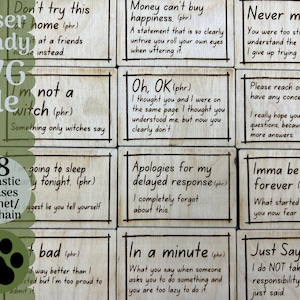 Don't try this
home (phr.)
at friends
instead.
Money can't buy
happiness. (phr.)
A statement that is so clearly
untrue you roll your own eyes
when uttering it
Never m
You were too st
understand the
I give up trying t
I'm not a
witch (phr)
Something only witches say
Oh, OK (phr)
I thought you and I were on
the same page. I thought you
understood me, but now you
clearly don't
Please reach o
have any concer
I really hope you
questions, becau
more answers
going to sleep
tonight. (phr.)
lie you tell yourself
Apologies for my
delayed response (phr)
I completely forgot
about this
Imma be
forever (
What started
you now fear
t bad (phr)
way better than I
but I'm too proud to
admit
In a minute (phr)
What you say when someone
asks you to do something and
you are too lazy to do it
Just Say
I do NOT take
responsibility
just said